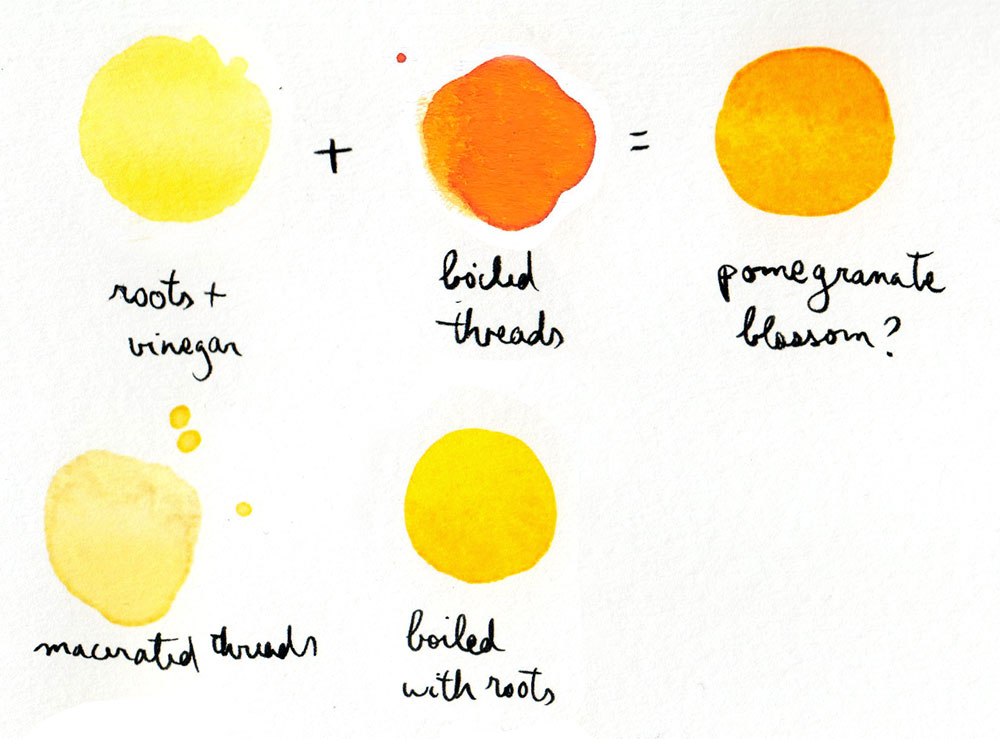 +
=
roots +
vinegar
boiled
threads
pomegranate
blossom?
macerated threads
boiled
with roots